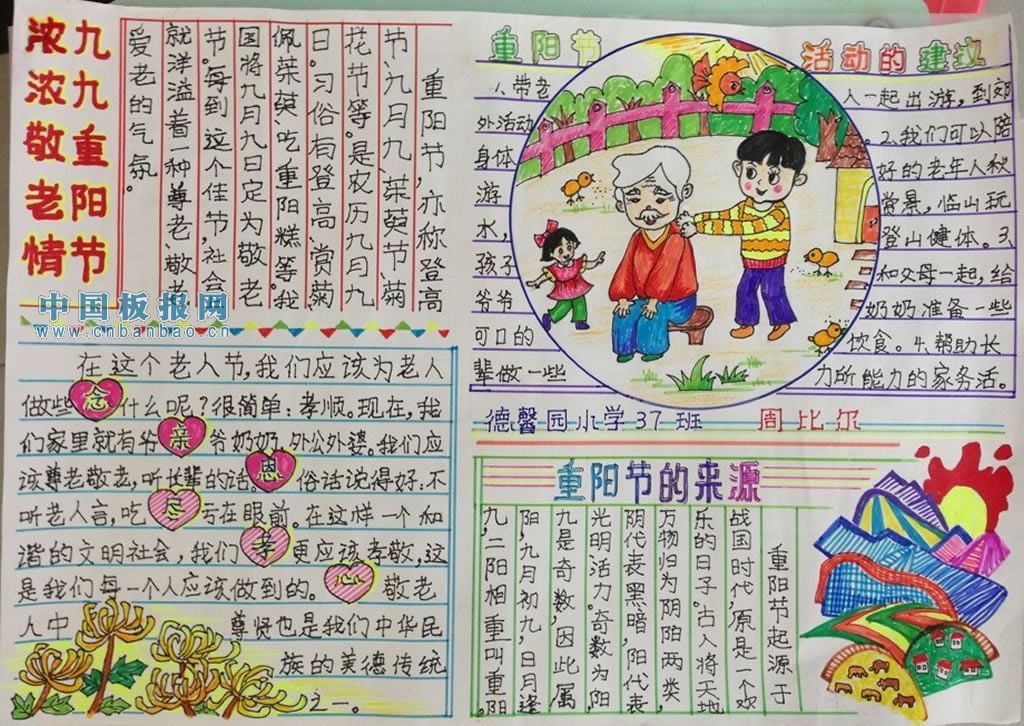 九九重阳节
浓浓敬老情
重阳节,亦称登高
节、九月九、茱萸节、菊
花节等。是农历九月九
日。习俗有登高、赏菊
佩茱萸、吃重阳糕等。我
国将九月九日定为敬老
节。每到这个佳节,社会
就洋溢着一种尊老、敬老
爱老的气氛。
中国板报网
www.cnbanbao.cn
重阳节 活动的建议
1、带老人一起出游,到郊
外活动 2、我们可以陪
身体好的老年人秋
游赏景,临山玩
水,登山健体。3、
孩子和父母一起,给
爷爷奶奶准备一些
可口的饮食。4、帮助长
辈做一些力所能力的家务活。
德馨园小学37班 周比尔
在这个老人节,我们应该为老人
做些什么呢?很简单:孝顺。现在,我
们家里就有爷爷奶奶,外公外婆。我们应
该尊老敬老,听长辈的话。俗话说得好:不
听老人言,吃亏在眼前。在这样一个和
谐的文明社会,我们更应该孝敬,这
是我们每一个人应该做到的。敬老
人中尊贤也是我们中华民
族的美德传统
之一。
念
亲
恩
尽
孝
心
重阳节的来源
重阳节起源于
战国时代,原是一个欢
乐的日子。古人将天地
万物归为阴阳两类,
阴代表黑暗,阳代表
光明活力。奇数为阳
九是奇数,因此属
阳,九月初九,日月逢
九,二阳相重叫重阳。